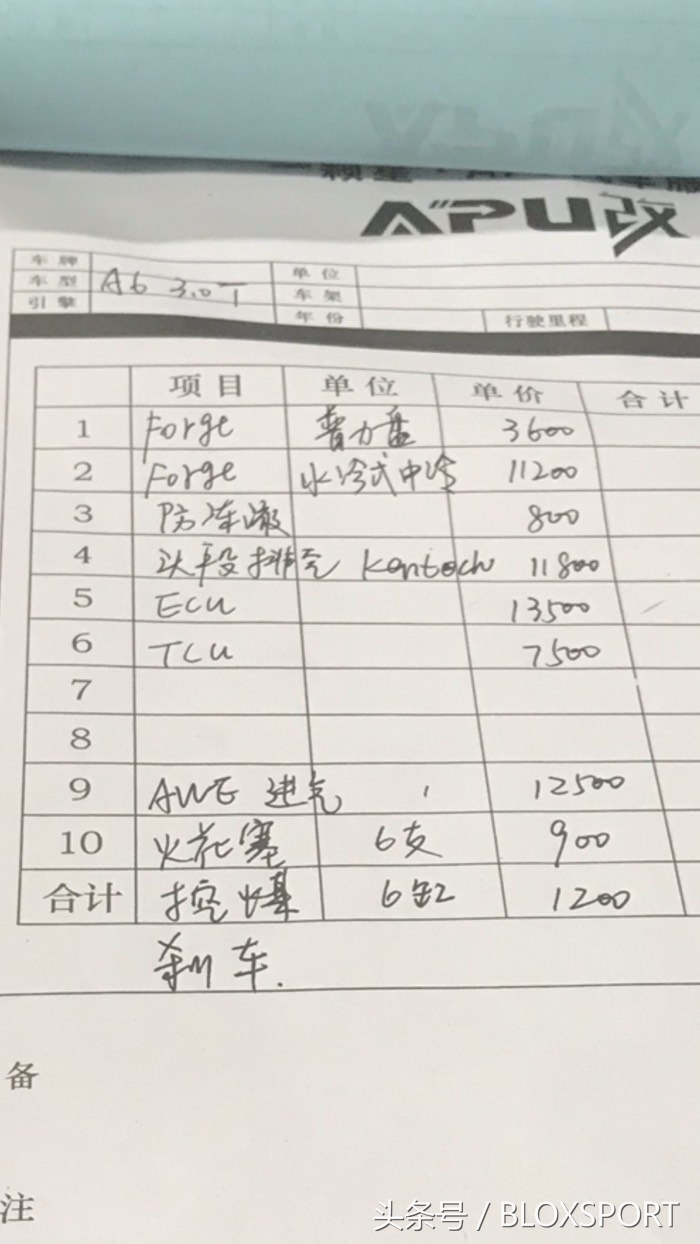 APU改
车牌
车型 A6 3.0T 单位
引擎 车架
年份 行驶里程
项目 单位 单价 合计
1 Forge 普力盘 3600
2 Forge 水冷式中冷 11200
3 防冻液 800
4 头段排气 11800
5 ECU 13500
6 TCU 7500
7
8
9 AWE 进气 12500
10 火花塞 6支 900
合计 6缸 1200
刹车.
备
注
头条号 / BLOXSPORT